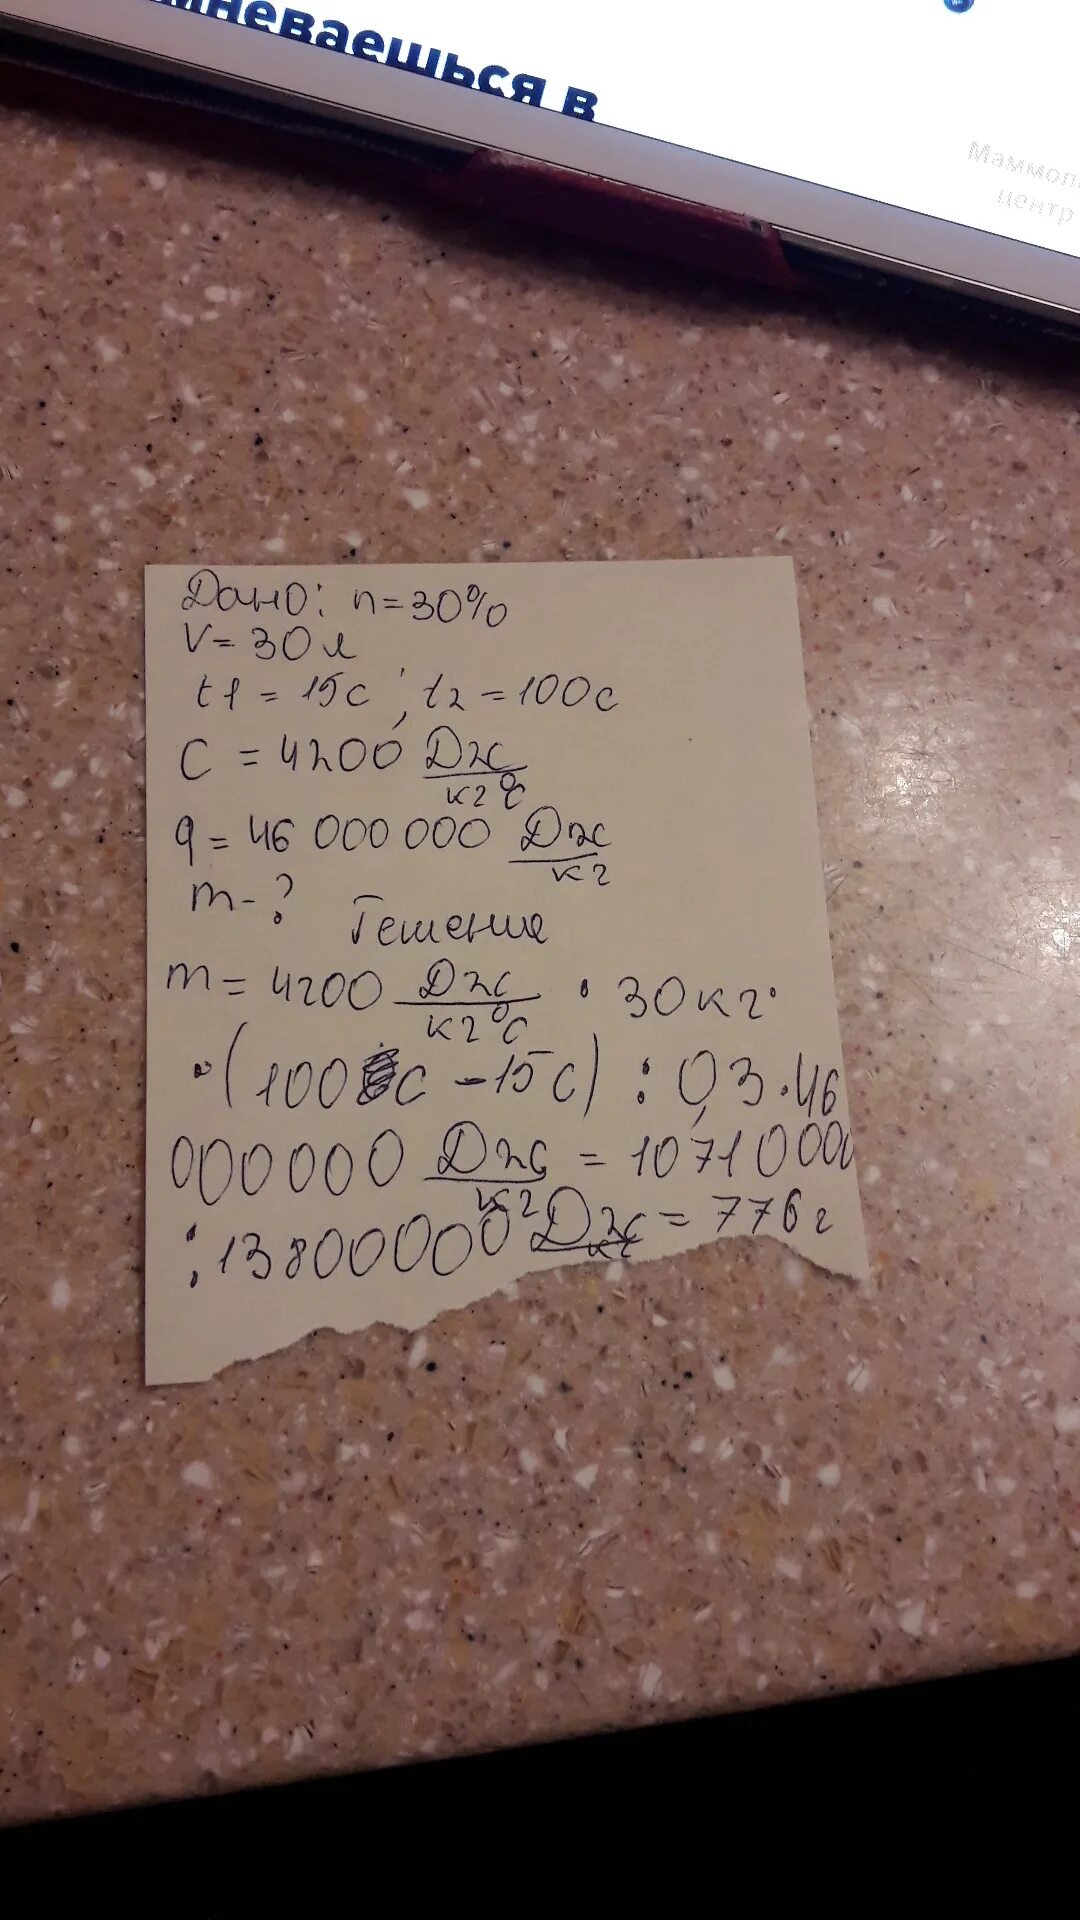 мневаешься в
Маммол
центр
Дано: n=30%
V=30л
t1=15c, t2=100c
C=4200 Дж/кг°C
q=46 000 000 Дж/кг
m-?
Решение
m=4200 Дж/кг°C · 30кг·
·(100 c -15c) : 0,3·46
000000 Дж/кг = 10710000
:13800000 Дж/кг = 776г